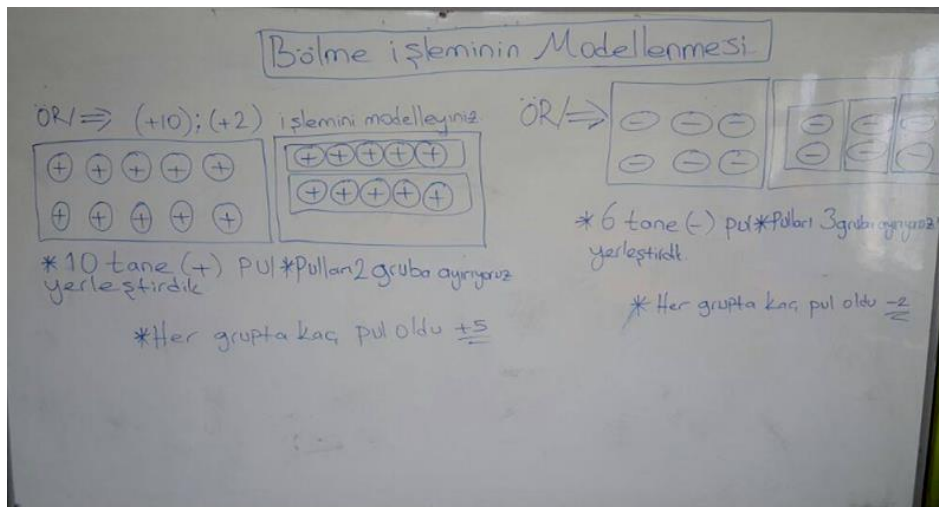 Bölme işleminin Modellenmesi
ÖR/⇒ (+10):(+2) işlemini modelleyiniz.
+ + + + +
+ + + + +
+ + + + +
+ + + + +
*10 tane (+) pul
yerleştirdik
*Pulları 2 gruba ayırıyoruz
*Her grupta kaç pul oldu +5
ÖR/⇒
- - -
- - -
- - -
- - -
*6 tane (-) pul
yerleştirdik.
*Pulları 3 gruba ayırıyoruz
* Her grupta kaç pul oldu -2